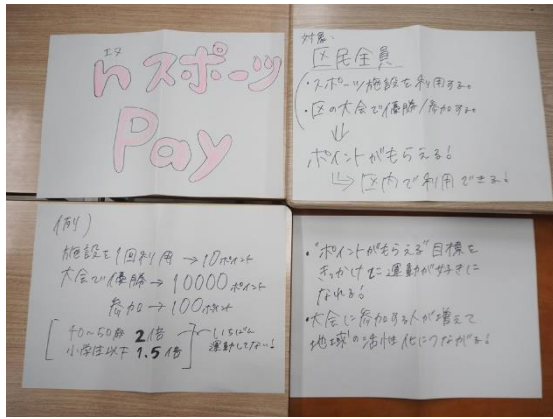 nスポーツ
Pay
対象、
区民全員
・スポーツ施設を利用する。
・区の大会で優勝/参加する。
↓
ポイントがもらえる!
↳区内で利用できる!
例)
施設を1回利用→10ポイント
大会で優勝→10000ポイント
参加→100ポイント
40〜50代 2倍
小学生以下 1.5倍
いちばん
運動してない!
・"ポイントがもらえる"目標を
きっかけに運動が好きに
なれる!
・大会に参加する人が増えて
地球の活性化につながる!